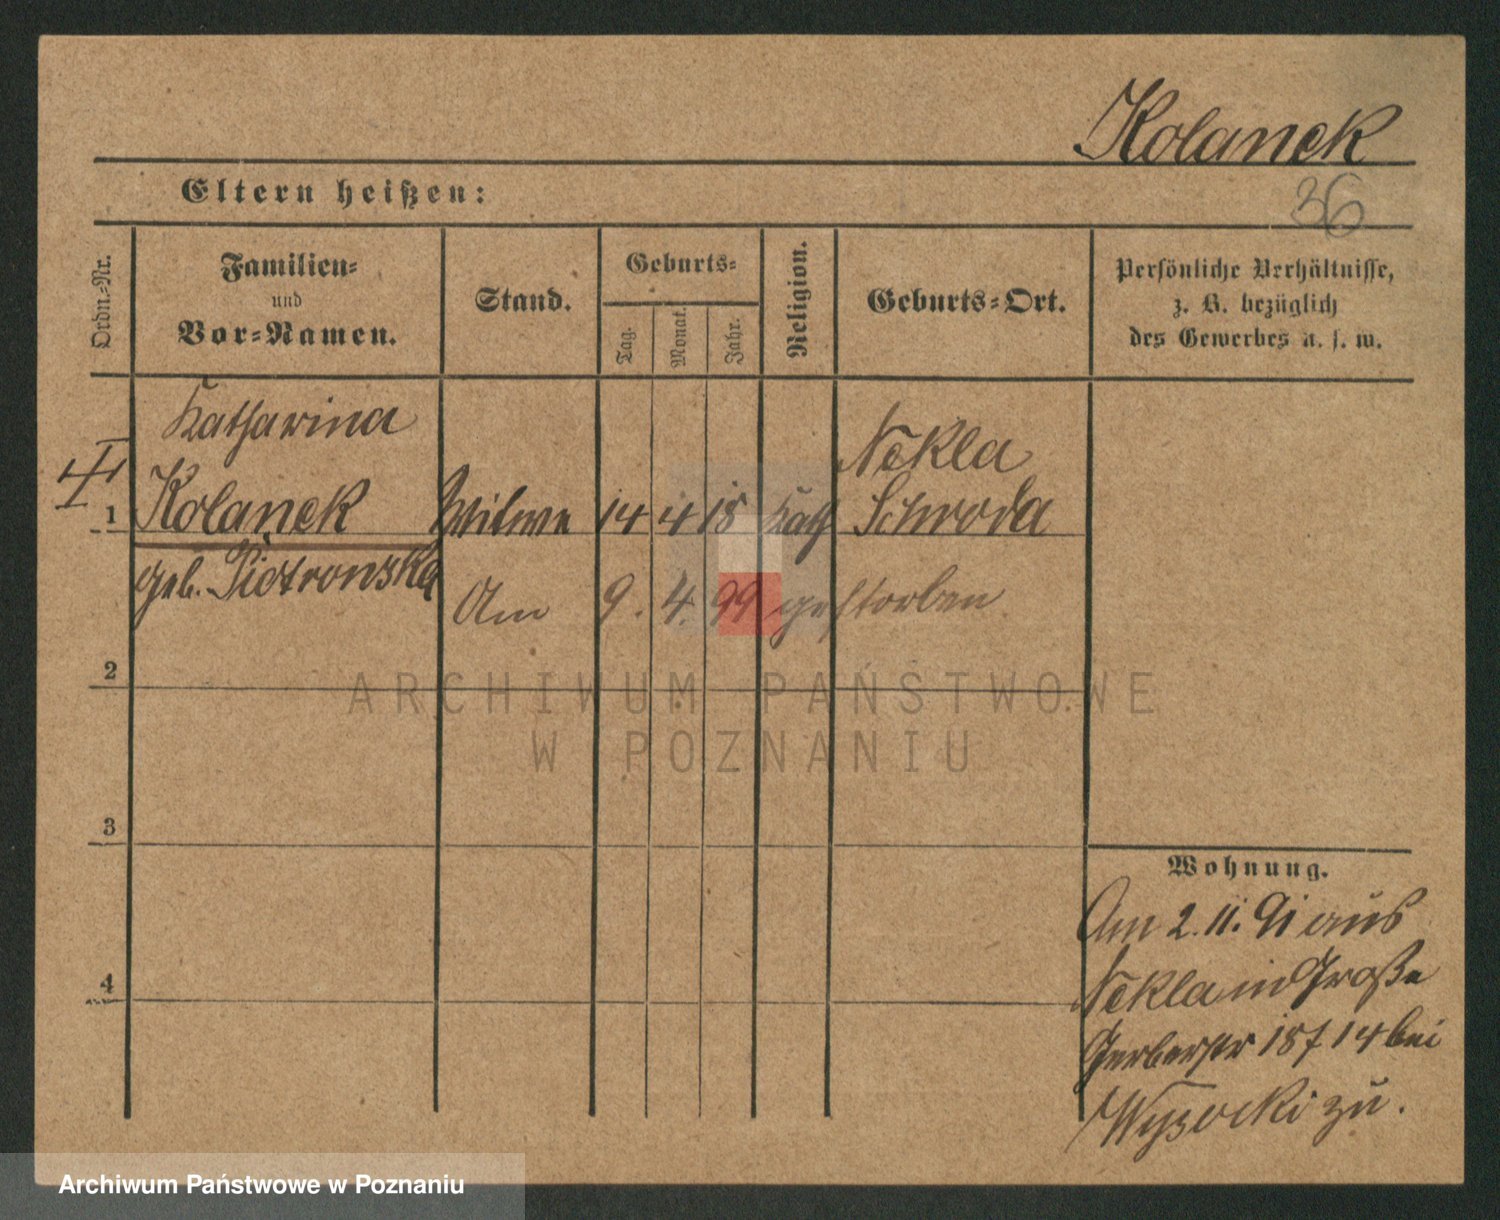 Kolanek
36
Eltern heißen:
Ordn.-Nr.
Familien-
und
Vor-Namen.
Stand.
Geburts-
Tag.
Monat.
Jahr.
Religion.
Geburts-Ort.
Persönliche Verhältnisse,
z. B. bezüglich
des Gewerbes u. s. w.
Katharina
1 Kolanek Witwe 14 4 18 kath Nekla
Schroda
geb. Piotrowska
Am 9. 4. 99 gestorben
2
3
4
Wohnung.
Am 2. 11. 91 aus
Nekla in Große
Gerberstr 18 / 14 bei
Wysocki zu.
ARCHIWUM PAŃSTWOWE
W POZNANIU
Archiwum Państwowe w Poznaniu